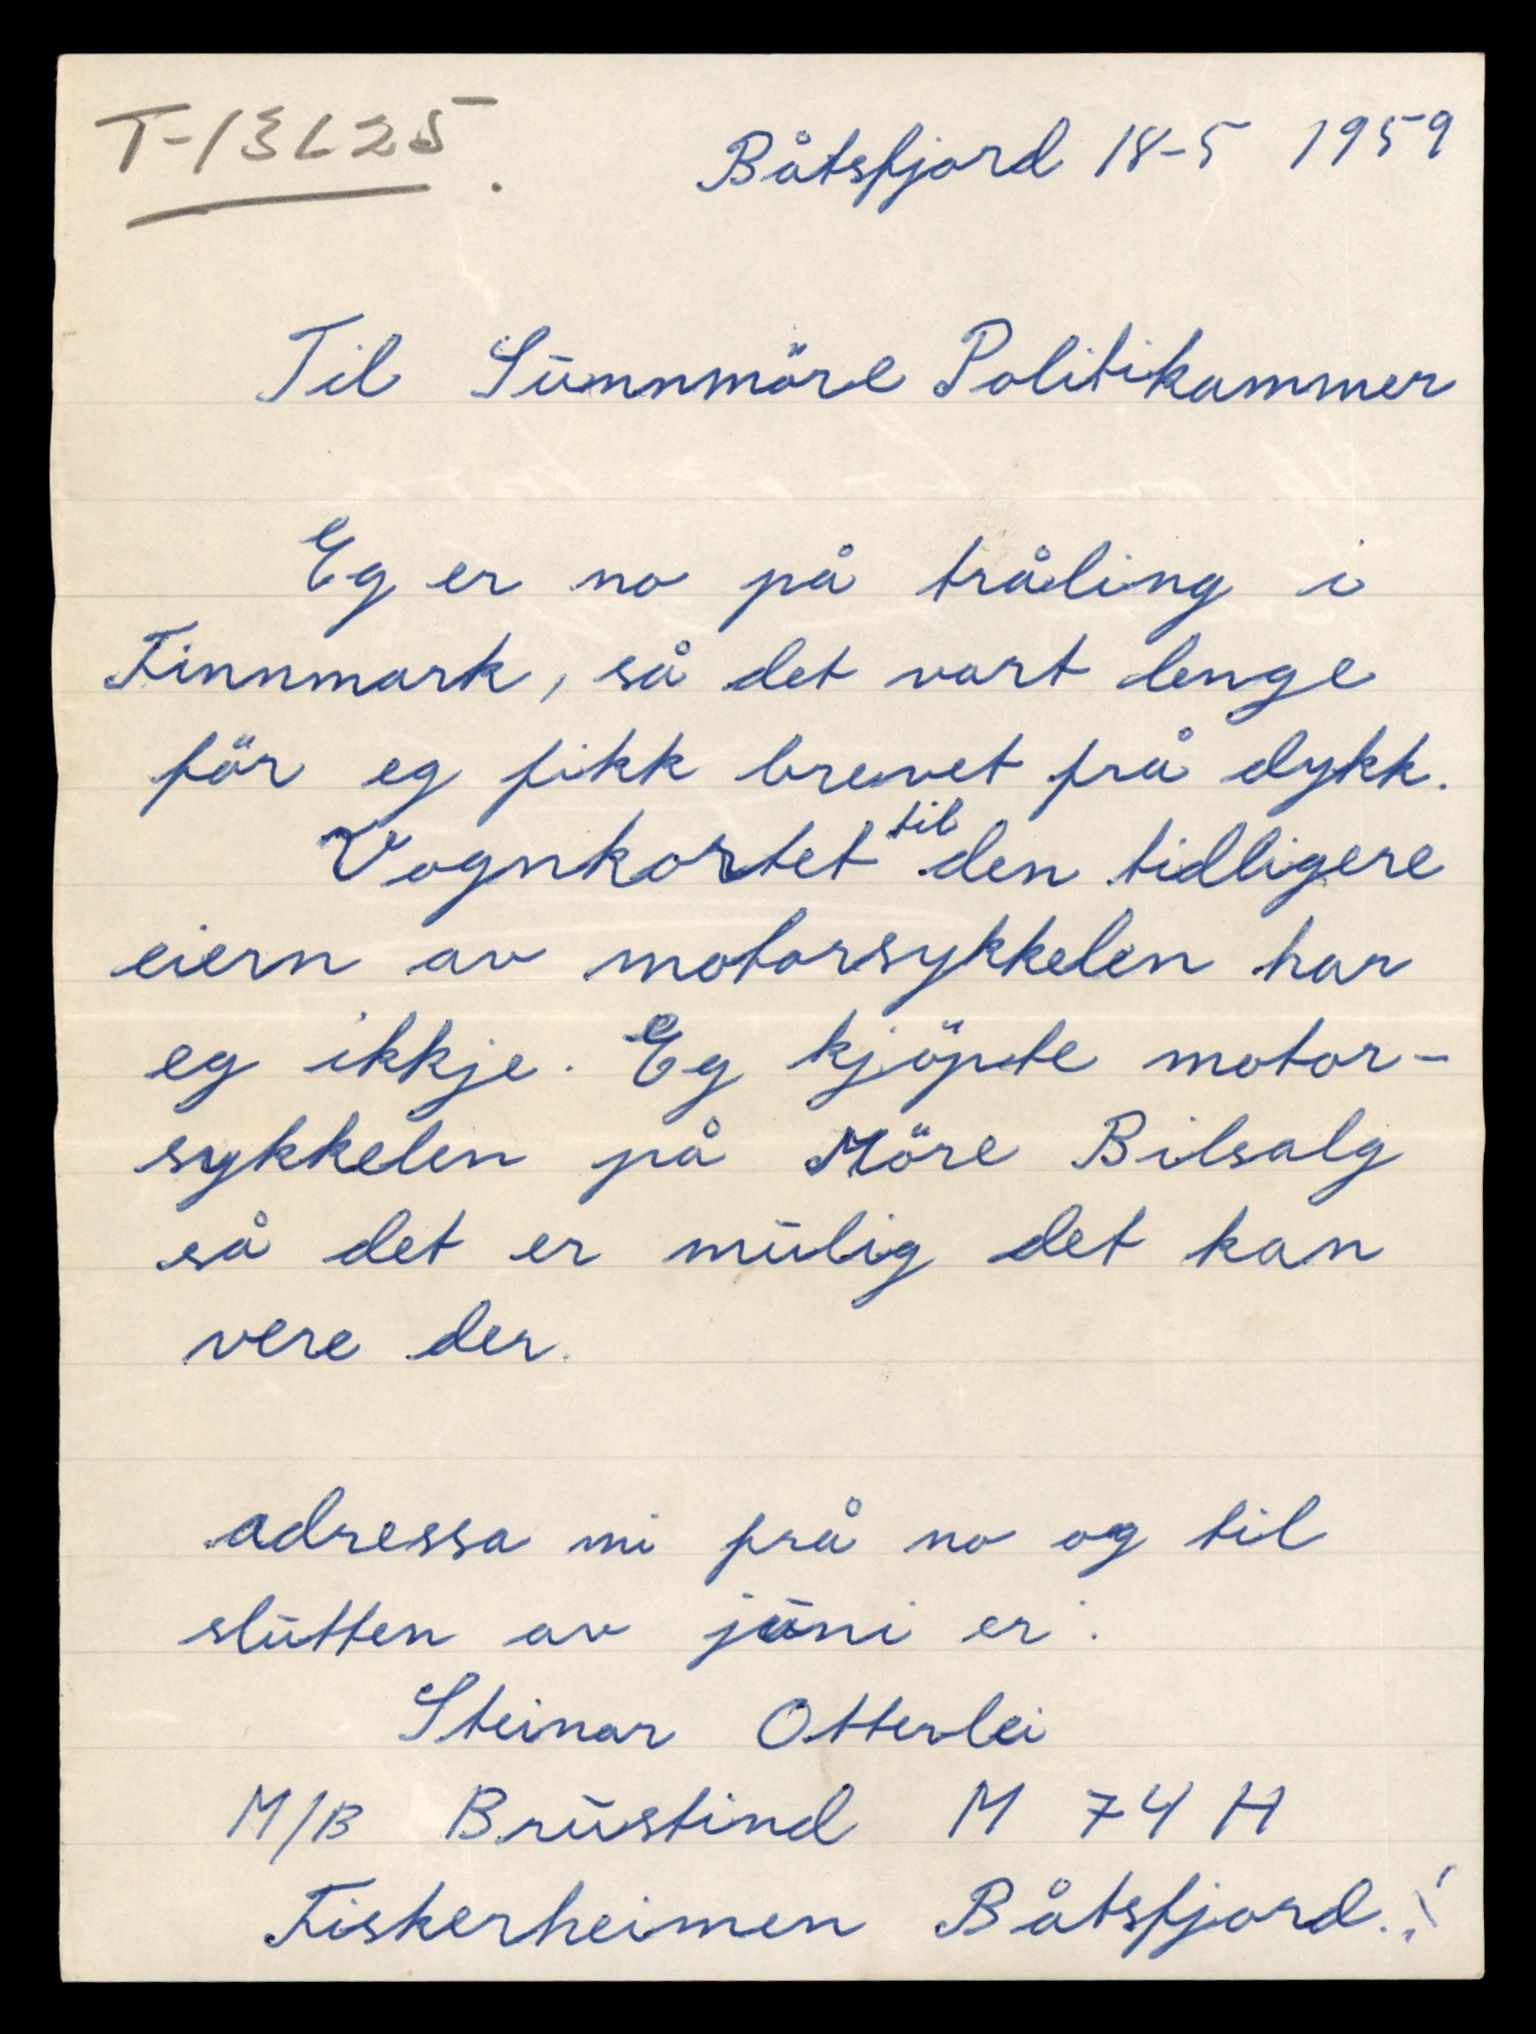 T-13625.
Båtsfjord 18-5 1959
Til Sunnmöre Politikammer
Eg er no på tråling i
Finnmark, så det vart lenge
för eg fikk brevet frå dykk.
Vognkortet til den tidligere
eiern av motorsykkelen har
eg ikkje. Eg kjöpte motor-
sykkelen på Möre Bilsalg
så det er mulig det kan
vere der.
adressa mi frå no og til
slutten av juni er:
Steinar Otterlei
M/B Brustind M 74 H
Fiskerheimen Båtsfjord.!